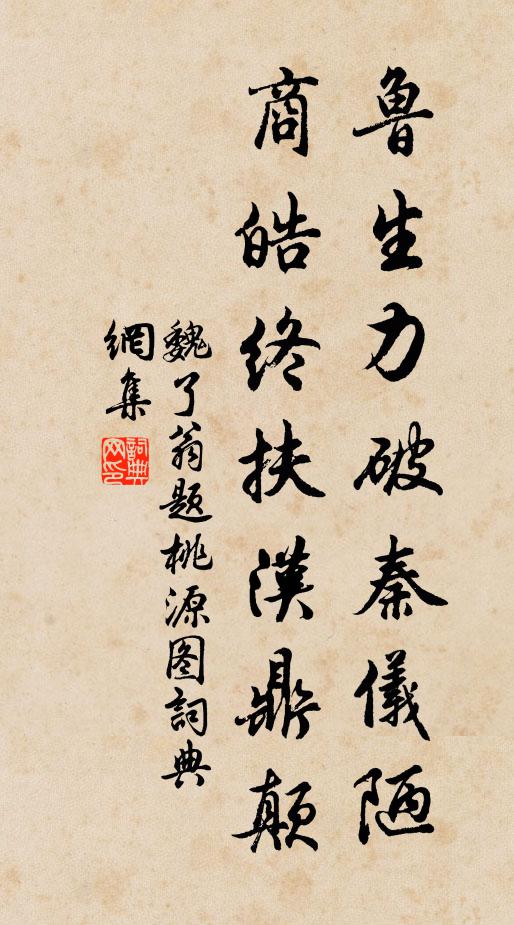 鲁生力破秦儀陋
商皓終扶漢鼎顛
魏了翁题桃源图詞典
網集
詞典
网印